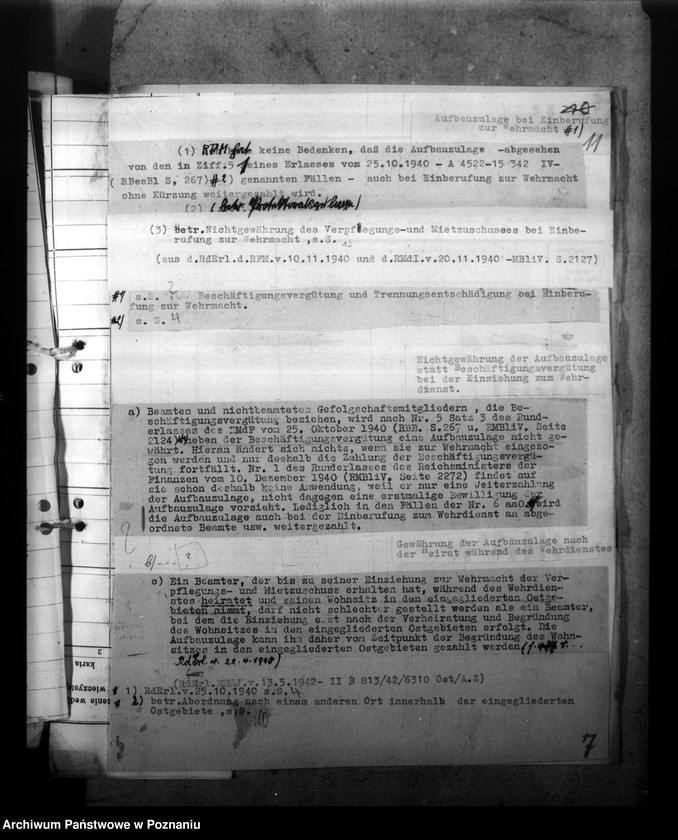 Aufbauzulage bei Einberufung
zur Wehrmacht #1)
11
(1) RFM hat keine Bedenken, daß die Aufbauzulage -abgesehen
von den in Ziff.5 seines Erlasses vom 25.10.1940 - A 4522-15 342 IV-
( RBesBl S, 267) #2) genannten Fällen - auch bei Einberufung zur Wehrmacht
ohne Kürzung weitergezahlt wird.
(2)
(3) Betr.Nichtgewährung des Verpflegungs-und Mietzuschusses bei Einbe-
rufung zur Wehrmacht ,s.S.
(aus d.RdErl.d.RFM.v.10.11.1940 und d.RMdI.v.20.11.1940 -MBliV. S.2127)
#1 s.S. Beschäftigungsvergütung und Trennungsentschädigung bei Einberu-
fung zur Wehrmacht.
#2) s. S. 4
Nichtgewährung der Aufbauzulage
statt Beschäftigungsvergütung
bei der Einziehung zum Wehr-
dienst.
a) Beamten und nichtbeamteten Gefolgschaftsmitgliedern , die Be-
schäftigungsvergütung beziehen, wird nach Nr. 5 Satz 3 des Rund-
erlasses des RMdF vom 25. Oktober 1940 (RBB. S.267 u. RMBliV. Seite
2124) neben der Beschäftigungsvergütung eine Aufbauzulage nicht ge-
währt. Hieran ändert sich nichts, wenn sie zur Wehrmacht eingezo-
gen werden und nur deshalb die Zahlung der Beschäftigungsvergü-
tung fortfällt. Nr. 1 des Runderlasses des Reichsministers der
Finanzen vom 10. Dezember 1940 (RMBliV. Seite 2272) findet auf
sie schon deshalb keine Anwendung, weil er nur eine Weiterzahlung
der Aufbauzulage, nicht dagegen eine erstmalige Bewilligung der
Aufbauzulage vorsieht. Lediglich in den Fällen der Nr. 6 aaO. wird
die Aufbauzulage auch bei der Einberufung zum Wehrdienst an abge-
ordnete Beamte usw. weitergezahlt.
Gewährung der Aufbauzulage nach
der Heirat während des Wehrdienstes
b)---- ?
c) Ein Beamter, der bis zu seiner Einziehung zur Wehrmacht den Ver-
pflegungs- und Mietzuschuss erhalten hat, während des Wehrdien-
stes heiratet und seinen Wohnsitz in den eingegliederten Ostge-
bieten nimmt, darf nicht schlechter gestellt werden als ein Beamter,
bei dem die Einziehung erst nach der Verheiratung und Begründung
des Wohnsitzes in den eingegliederten Ostgebieten erfolgt. Die
Aufbauzulage kann ihm daher vom Zeitpunkt der Begründung des Wohn-
sitzes in den eingegliederten Ostgebieten gezahlt werden
RdErl. v. 22.4.1940)
(RdErl.RMdI.v.13.5.1942- II B 813/42/6310 Ost/A.Z)
1) RdErl.v.25.10.1940 s.S. 4
2) betr.Abordnung nach einem anderen Ort innerhalb der eingegliederten
Ostgebiete ,s.S. 10
7
2
karta
Archiwum Państwowe w Poznaniu